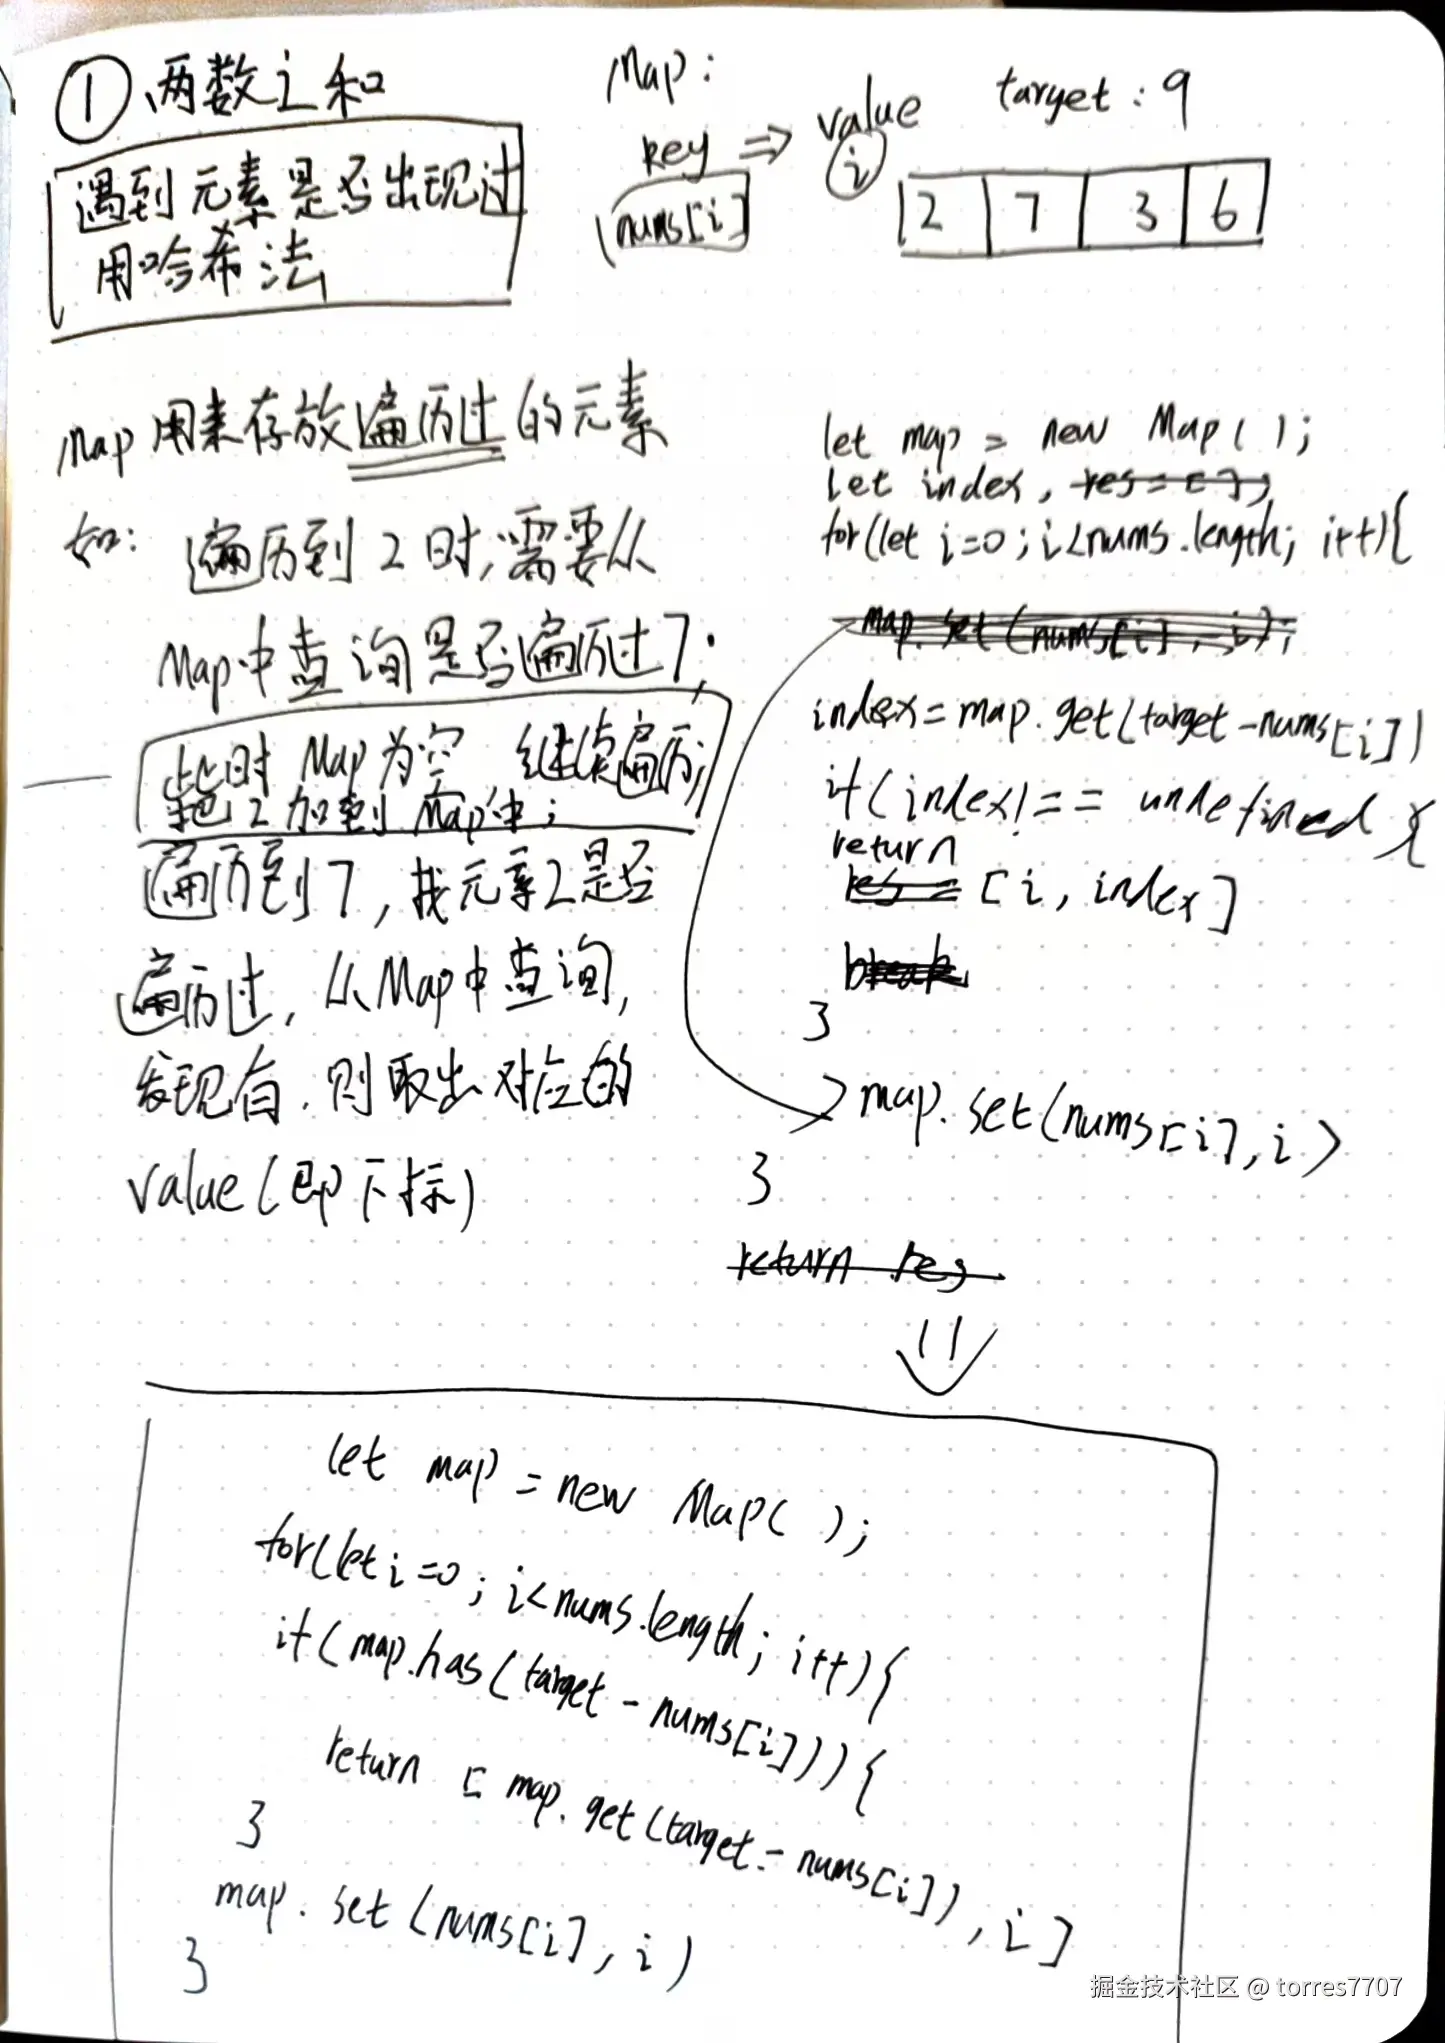 ①、两数之和
遇到元素是否出现过
用哈希法
Map:
key => value
nums[i] i
target: 9
2 7 3 6
Map用来存放遍历过的元素
如: 遍历到2时,需要从
Map中查询是否遍历过7;
此时Map为空 继续遍历;
把2加到Map中;
遍历到7,找元素2是否
遍历过,从Map中查询,
发现有.则取出对应的
value(即下标)
let map = new Map();
let index, res=[];
for(let i=0;i<nums.length; i++){
map.set(nums[i], i);
index=map.get(target-nums[i])
if(index!== undefined){
return
res = [i, index]
break
}
map.set(nums[i],i)
}
return res
let map = new Map( );
for(let i=0; i<nums.length; i++){
if(map.has(target-nums[i])){
return [map.get(target-nums[i]), i]
}
map.set(nums[i], i)
}
掘金技术社区 @ torres7707